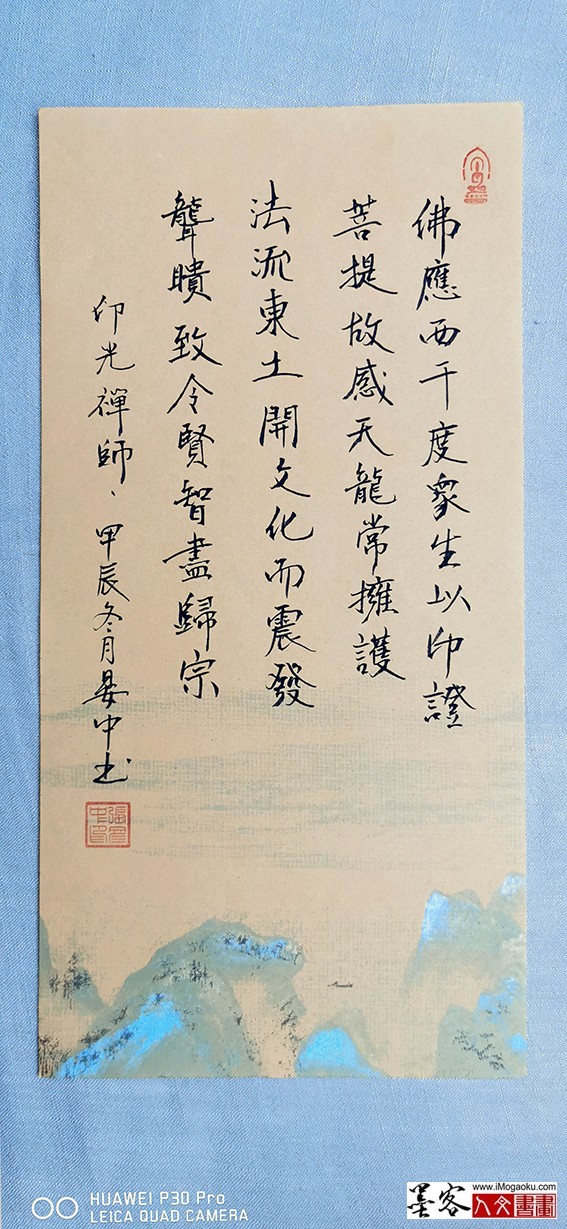 佛應西干度衆生以印證
菩提故感天龍常擁護
法流東土開文化而震發
聾聵致令賢智盡歸宗
印光禪師、甲辰冬月晏中书
HUAWEI P30 Pro
LEICA QUAD CAMERA
www.iMogaoku.com
墨客人文書畫